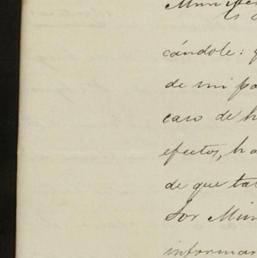 cándole:
de mi pa
caso de h
efectos, ha
de que tan
Sor Min
informar